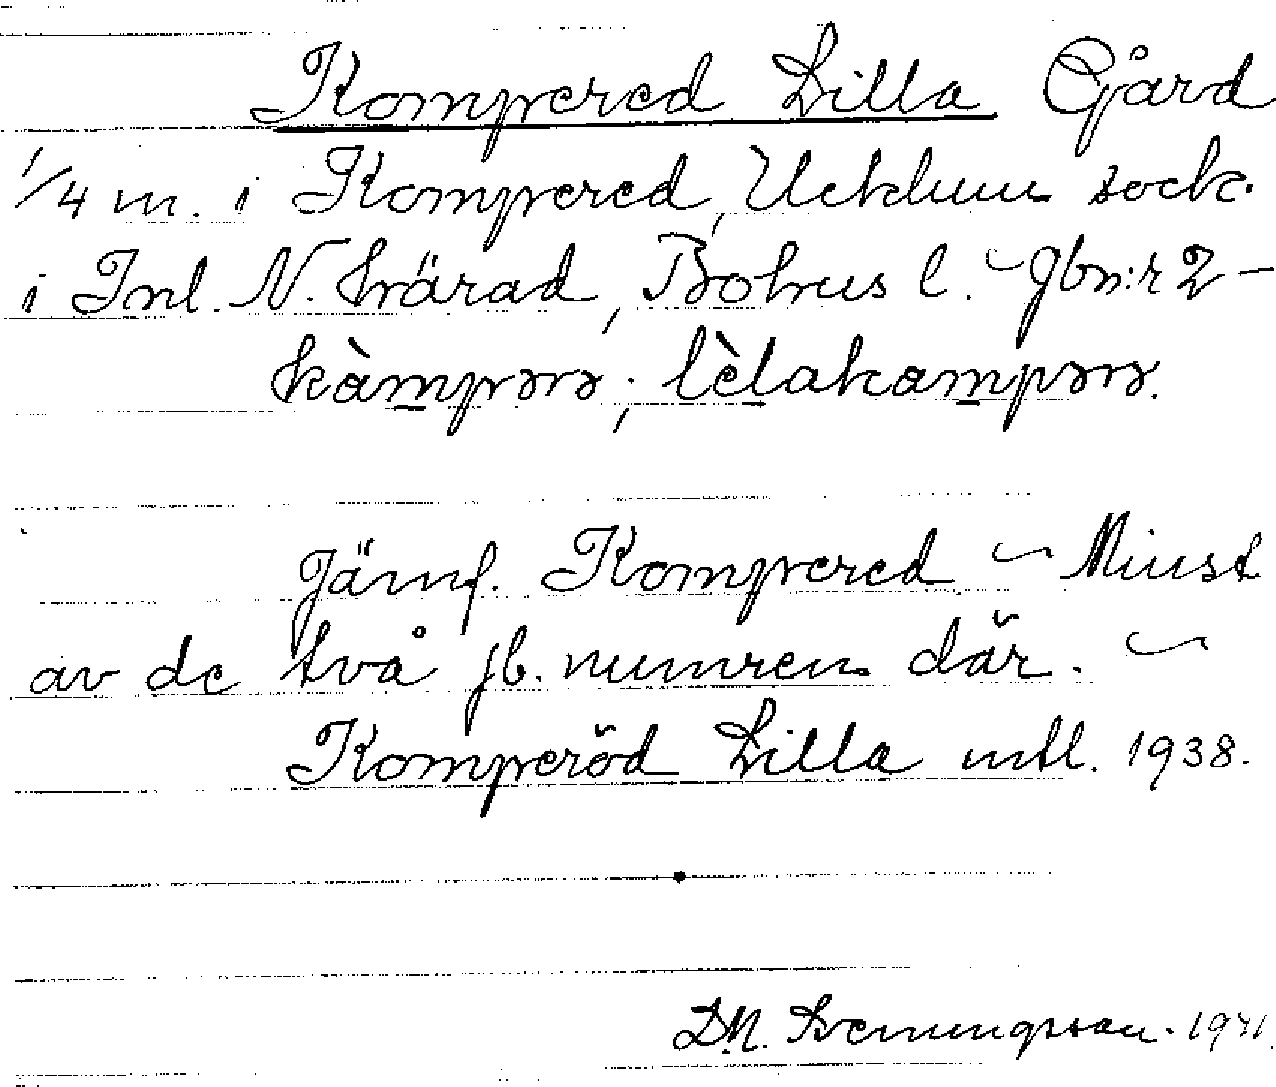 Kompered Lilla Gård
1/4 m. i Kompered, Ucklum sock.
i Inl. N. härad, Bohus l. ~ Jbn:r 2 –
kàmpərə; lèlakampərə.
Jämf. Kompered ~ Minst
av de två jb. numren där. ~
Komperöd Lilla mtl. 1938.
D.N. Svenningsson. 1941.